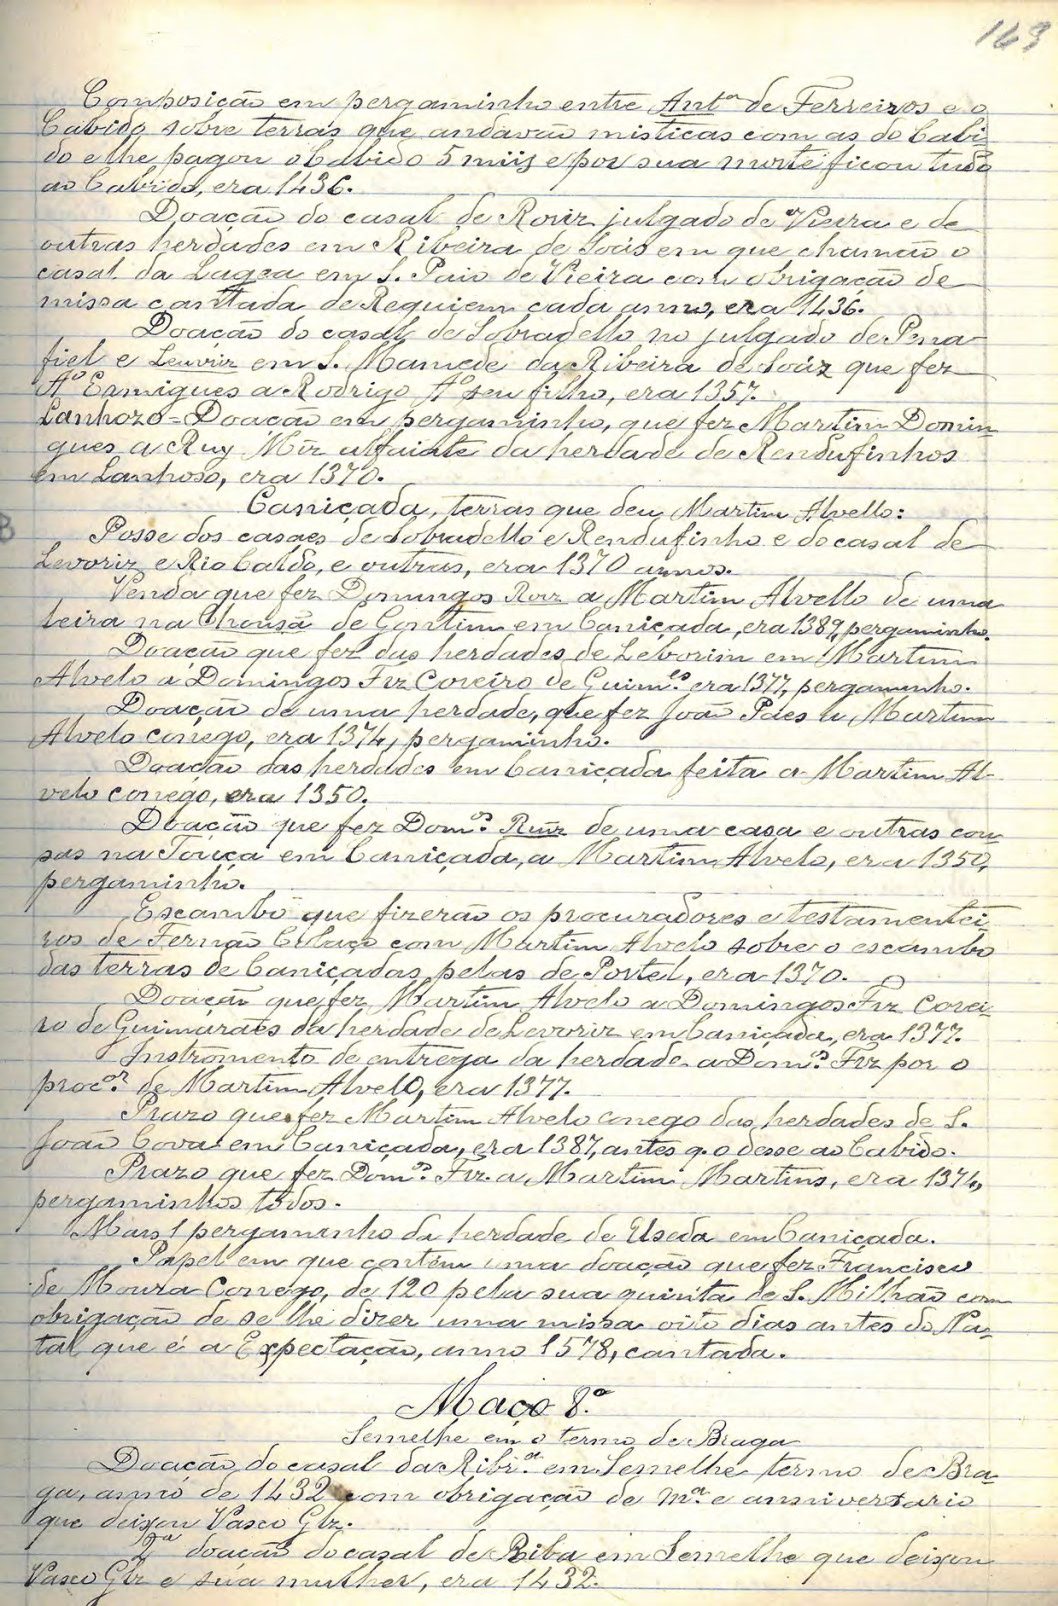 163
Composição em pergaminho entre Ant.ª de Ferreiros e o
Cabido sobre terras que andavão misticas com as do Cabi-
do e lhe pagou o Cabido 5 miis e por sua morte ficou tudo
ao Cabido, era 1436.
Doação do casal de Roriz julgado de Vieira e de
outras herdades em Ribeira de Soás em que chamão o
casal da Lagea em S. Paio de Vieira com obrigação de
missa cantada de Requiem cada anno, era 1436.
Doação do casal de Sobradello no julgado de Pena-
fiel e Leuvriz em S. Mamede da Ribeira de Soáz que fez
Aº Ermigues a Rodrigo Aº seu filho, era 1357.
Lanhozo = Doação em pergaminho, que fez Martim Domin-
gues a Ruy Miz alfaiate da herdade de Rendufinhos
em Lanhoso, era 1370.
Caniçada, terras que deu Martim Alvello:
Posse dos casaes de Sobradello e Rendufinho e do casal de
Levoriz e Rio Caldo, e outras, era 1370 annos.
Venda que fez Domingos Roiz a Martim Alvello de uma
leira na Chousã de Gontim em Caniçada, era 1389, pergaminho.
Doação que fez das herdades de Leborim em Martim
Alvelo a Domingos Frz Coreiro de Guim.es era 1377, pergaminho.
Doação de uma herdade, que fez João Paes a Martim
Alvelo conego, era 1374, pergaminho.
Doação das herdades em Caniçada feita a Martim Al-
velo conego, era 1350.
Doação que fez Dom.os Ruiz de uma casa e outras cou-
sas na Touça em Caniçada, a Martim Alvelo, era 1350,
pergaminho.
Escambo que fizerão os procuradores e testamentei-
ros de Fernão com Martim Alvelo sobre o escambo
das terras de Caniçadas pelas de Portel, era 1370.
Doação que fez Martim Alvelo a Domingos Frz Corei-
ro de Guimarães da herdade de Levoriz em Caniçada, era 1377.
Instromento de entrega da herdade a Dom.os Frz por o
proc.or de Martim Alvelo, era 1377.
Prazo que fez Martim Alvelo conego das herdades de S.
João Cova em Caniçada, era 1387, antes q. o desse ao Cabido.
Prazo que fez Dom.os Frz. a Martim Martins, era 1374,
pergaminhos todos.
Mais 1 pergaminho da herdade de Useda em Caniçada.
Papel em que contém uma doação que fez Francisco
de Moura Conego, de 120 pela sua quinta de S. Milhão com
obrigação de se lhe dizer uma missa oito dias antes do Na-
tal que é a Expectação, anno 1578, cantada.
Maço 8.º
Semelhe em o termo de Braga
Doação do casal da Ribr.ª em Semelhe termo de Bra-
ga, anno de 1432 com obrigação de m.ª e anniversario
que deixou Vasco Glz.
2ª doação do casal de Riba em Semelhe que deixou
Vasco Glz e sua mulher, era 1432.